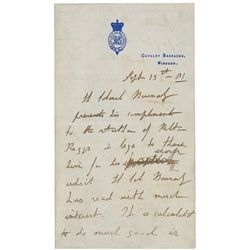 CAVALRY BARRACKS,
WINDSOR.
Sept 15th 81
Lt Colonel Burnaby
presents his compliments
to the author of Rilt
Rags & begs to thank
him for his
Lt Col Burnaby
has read with much
interest. It is calculated
to do much good in